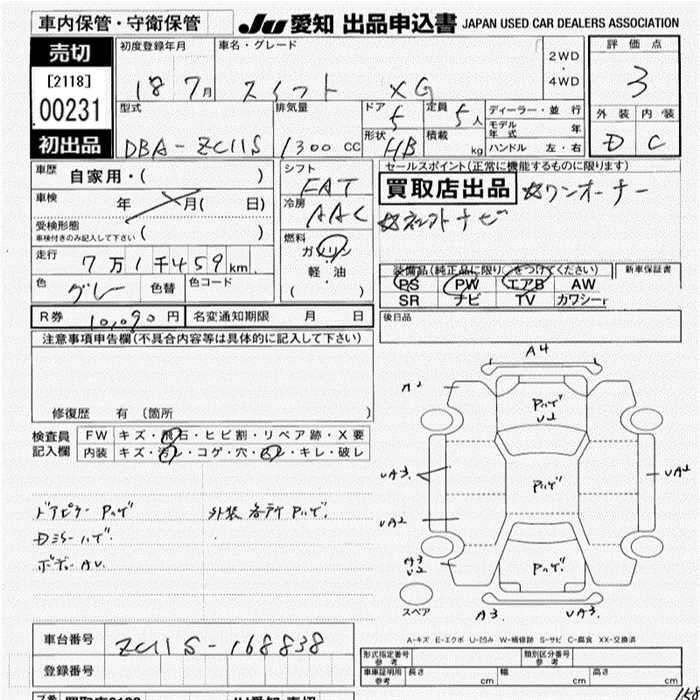 車内保管・守衛保管
JU 愛知 出品申込書 JAPAN USED CAR DEALERS ASSOCIATION
売切
[2118]
00231
初出品
初度登録年月 18 7月
車名・グレード スイフト XG
2WD
・
4WD
評価点
3
外装 内装
D C
型式 DBA-ZC11S
排気量 1300 CC
ドア 5
形状 HB
定員 5人
積載 kg
ディーラー・並行
モデル年式 年
ハンドル 左・右
車歴 自家用・( )
車検 年 月( 日)
受検形態
車検付きのみ記入して下さい ( )
走行 7万1千459km
色 グレー 色替 色コード
シフト FAT
冷房 AAC
燃料
ガソリン
軽・油
( )
セールスポイント(正常に機能するものに限ります)
買取店出品 ☆ワンオーナー
装備品(純正品に限り をつけてください) 新車保証書
PS PW エアB AW
SR ナビ TV カワシート
R券 10,090円 名変通知期限 月 日
後日品
注意事項申告欄(不具合内容等は具体的に記入して下さい)
修復歴 有(箇所 )
検査員
記入欄
FW キズ・飛石・ヒビ割・リペア跡・X要
内装 キズ・汚レ・コゲ・穴・スレ・キレ・破レ
ドアピラー Pハゲ 外装 各所 Pハゲ.
Dミラー ハゲ
ボデー AU
A4
A2
Pハゲ
U2
UA3.
Pハゲ
UA2
UA2
A3
U2
Pハゲ.
スペア
A3. UA3.
A-キズ E-エクボ U-凹み W-補修跡 S-サビ C-腐食 XX-交換済
車台番号 ZC11S-168838
登録番号
形式指定番号
参考
類別区分番号
参考
車庫証明用
参考
長さ cm 幅 cm 高さ cm